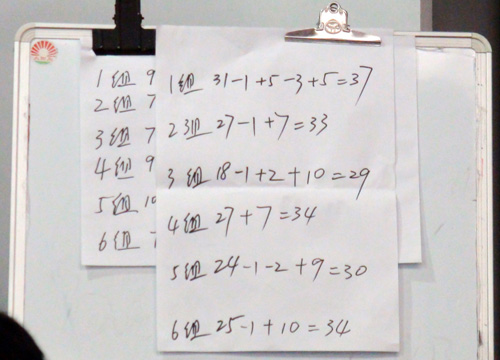 1组 9
2组 7
3组 7
4组 9
5组 10
6组
1组 31-1+5-3+5=37
2组 27-1+7=33
3组 18-1+2+10=29
4组 27+7=34
5组 24-1-2+9=30
6组 25-1+10=34